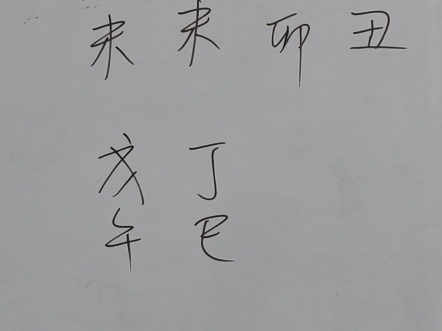 未 未 卯 丑
戊 丁
午 巳